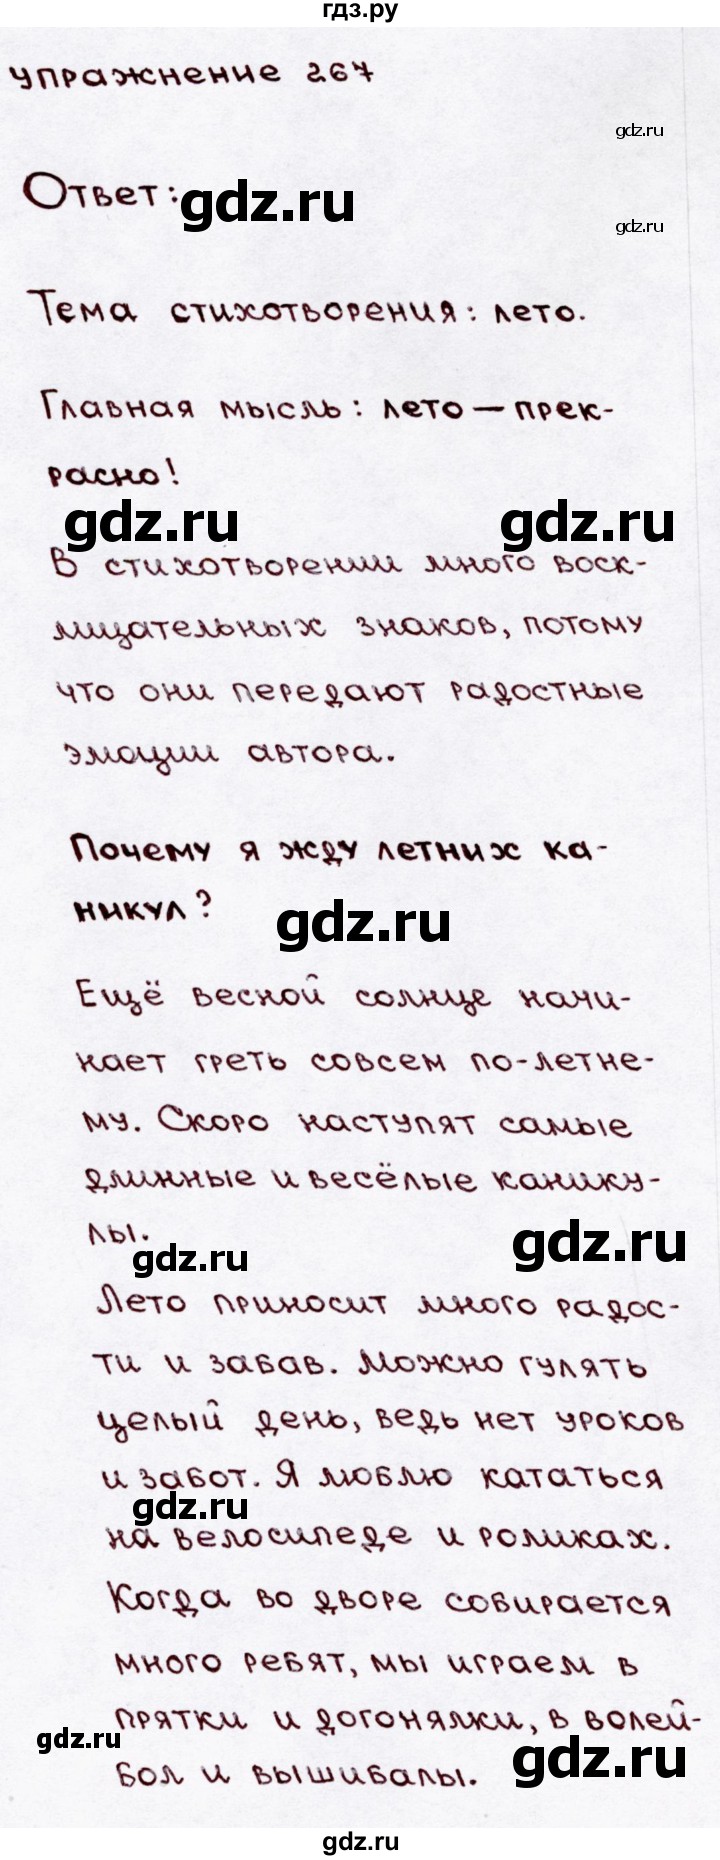 гдз.ру
упражнение 267
gdz.ru
Ответ:
gdz.ru
gdz.ru
Тема стихотворения: лето.
Главная мысль: лето — прек-
расно!
gdz.ru
gdz.ru
В стихотворении много воск-
лицательных знаков, потому
что они передают радостные
эмоции автора.
Почему я жду летних ка-
никул?
gdz.ru
Ещё весной солнце начи-
нает греть совсем по-летне-
му. Скоро наступят самые
длинные и весёлые канику-
лы.
gdz.ru
gdz.ru
Лето приносит много радос-
ти и забав. Можно гулять
целый день, ведь нет уроков
и забот. Я люблю кататься
gdz.ru
на велосипеде и роликах.
Когда во дворе собирается
много ребят, мы играем в
прятки и догонялки, в волей-
gdz.ru
gdz.ru
бол и вышибалы.
gdz.ru